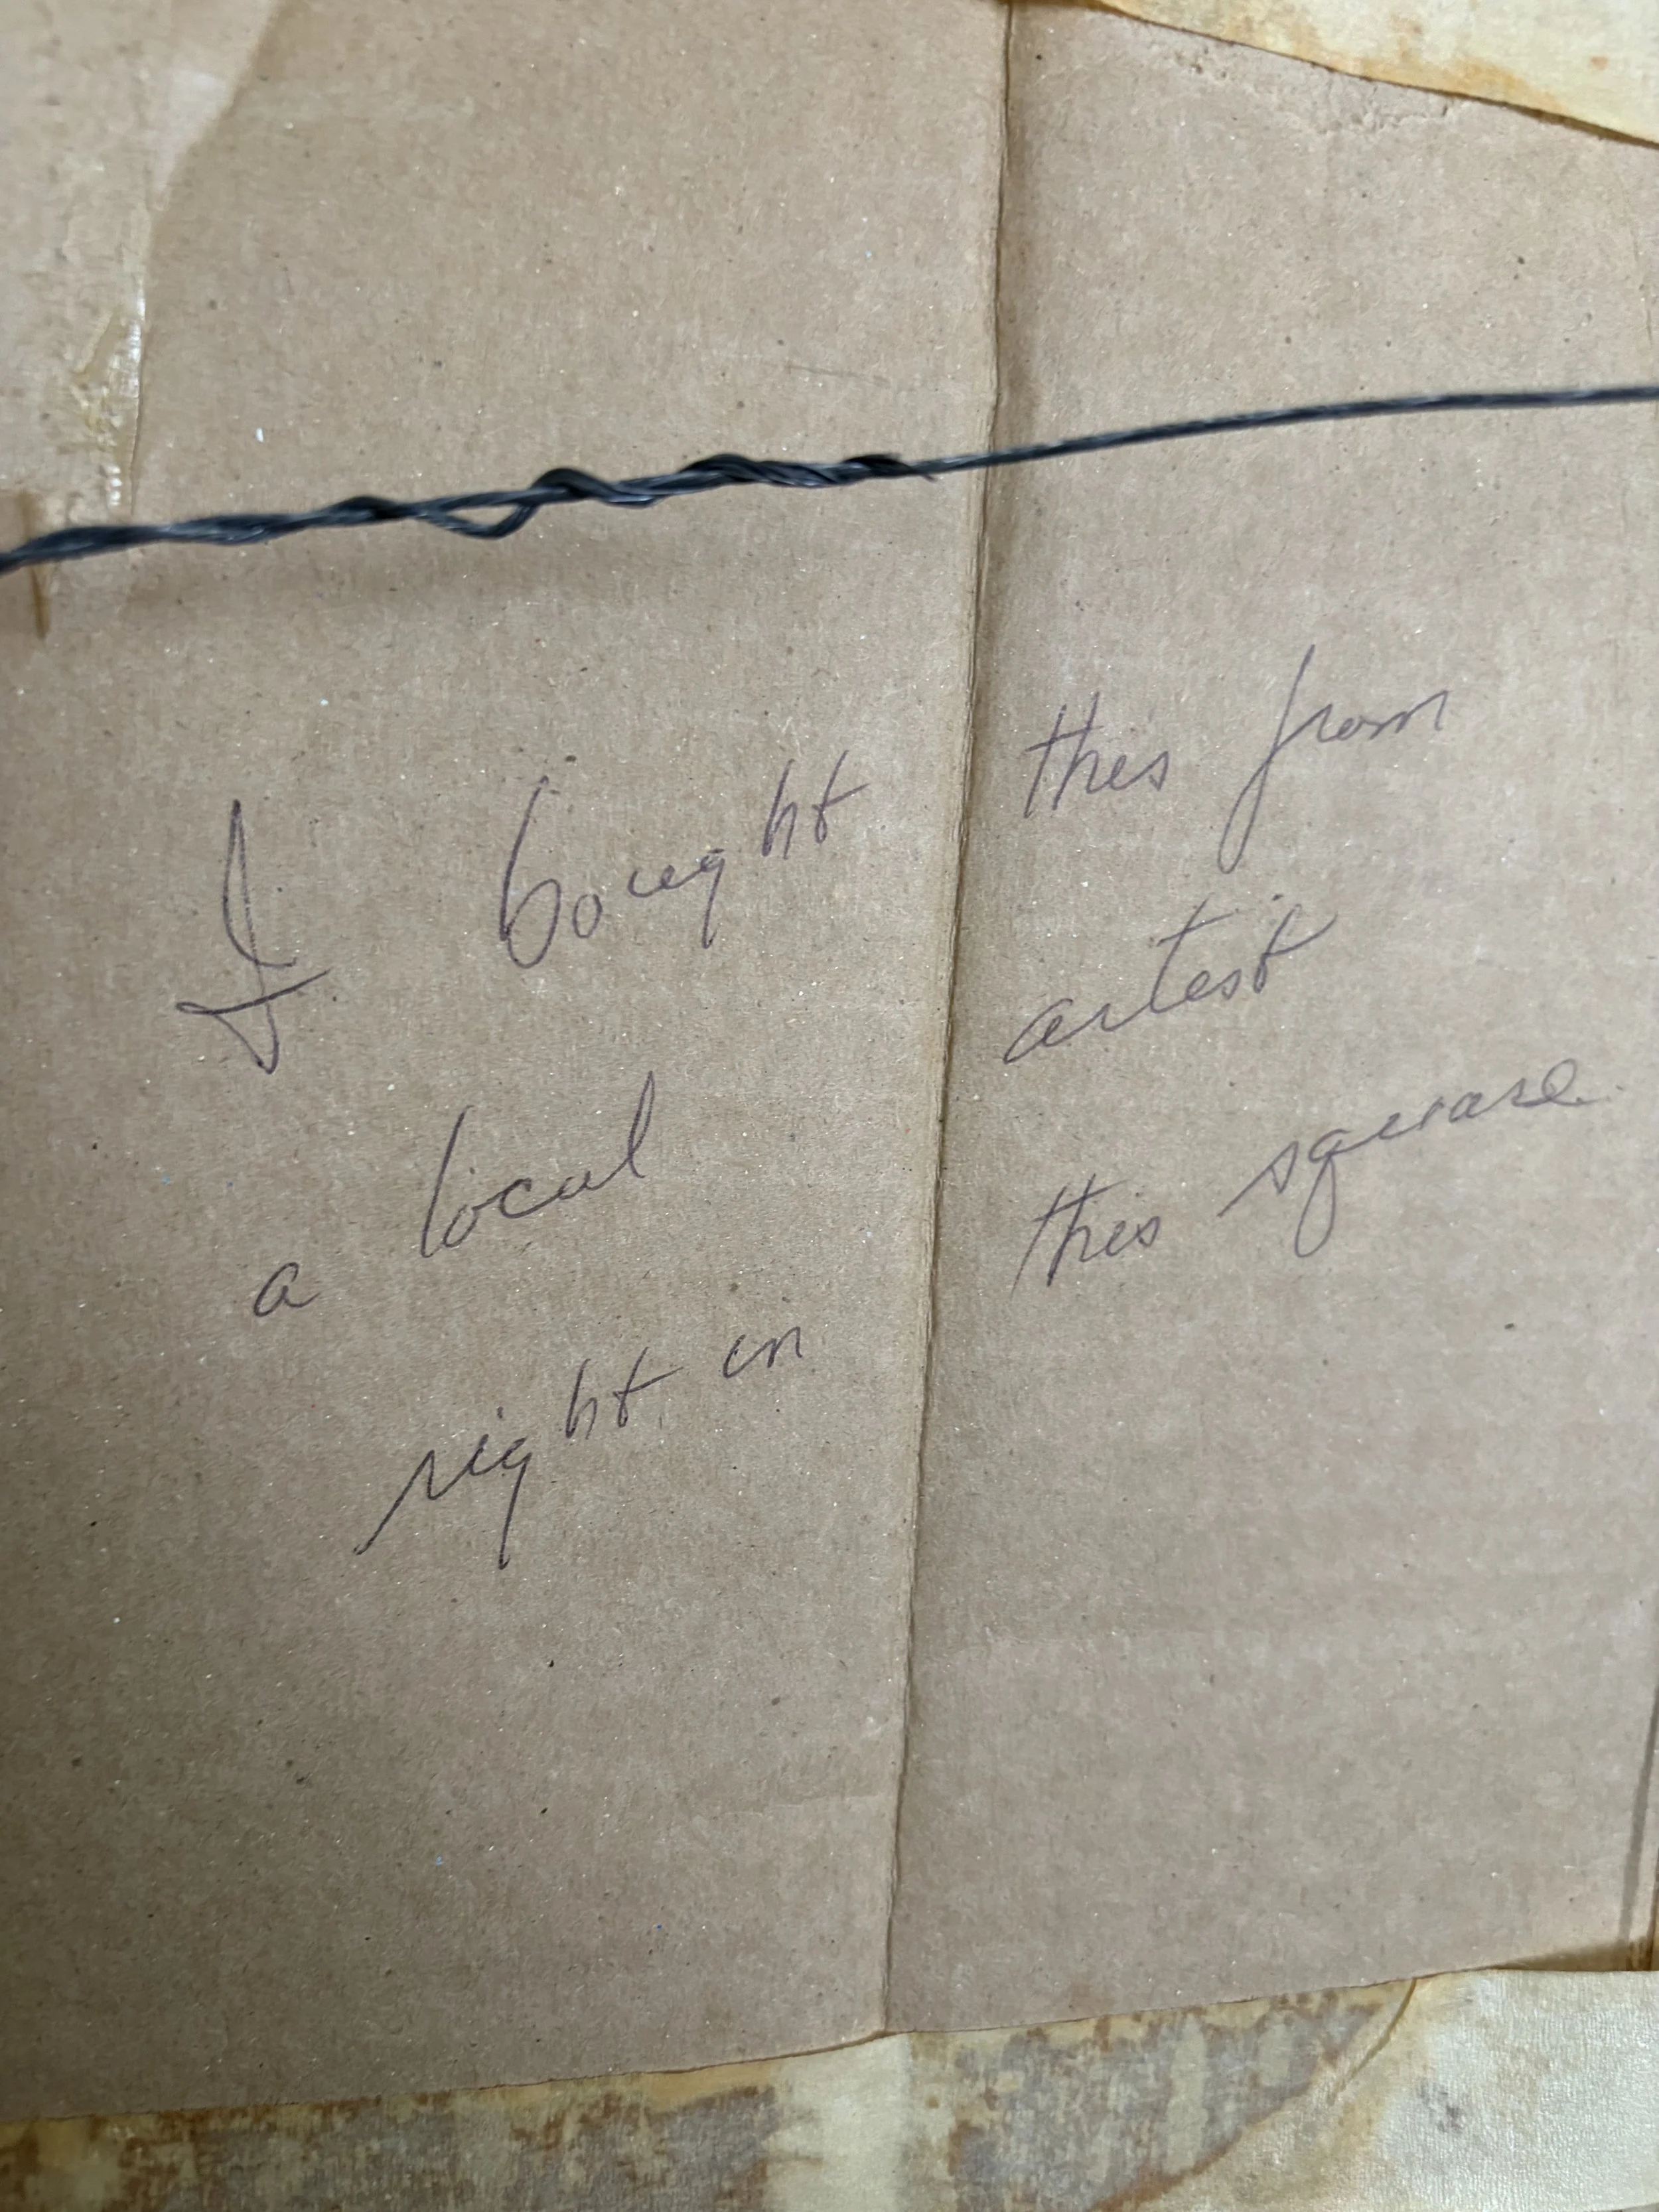 I bought this from
a local artist
right in this square